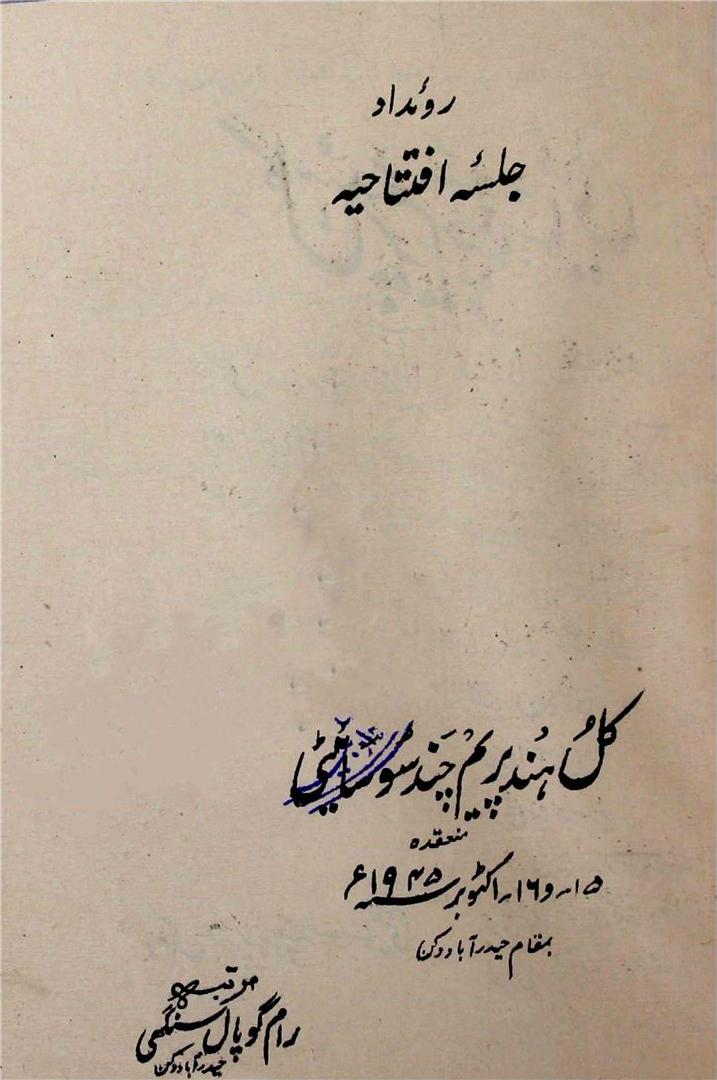 روئداد
جلسۂ افتتاحیہ
کُل ہند پریم چند سوسائٹی
منعقدہ
۱۵۔و۱۶۔اکٹوبر سنہ ۱۹۴۵ء
بمقام حیدرآباد دکن
مرتبہ
رام گوپال سنگھی
حیدرآباد دکن